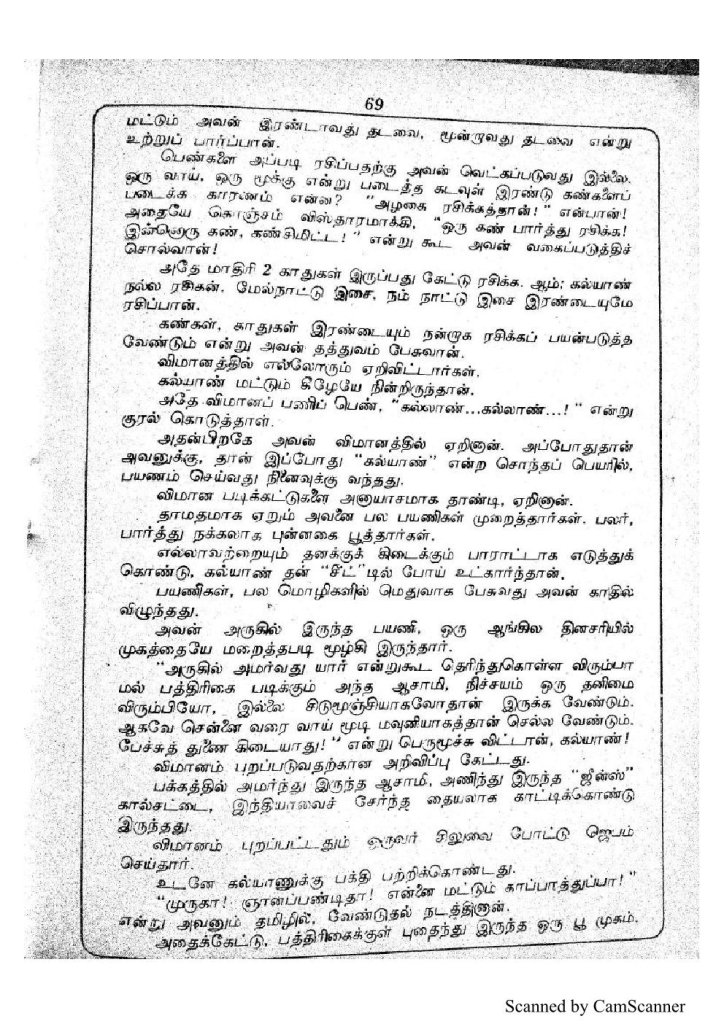 69
மட்டும் அவன் இரண்டாவது தடவை, மூன்றாவது தடவை என்று
உற்றுப் பார்ப்பான்.
பெண்களை அப்படி ரசிப்பதற்கு அவன் வெட்கப்படுவது இல்லை.
ஒரு வாய், ஒரு மூக்கு என்று படைத்த கடவுள் இரண்டு கண்களைப்
படைக்க காரணம் என்ன? "அழகை ரசிக்கத்தான்!" என்பான்!
அதையே கொஞ்சம் விஸ்தாரமாக்கி, "ஒரு கண் பார்த்து ரசிக்க!
இன்னொரு கண், கண்சிமிட்ட!" என்று கூட அவன் வகைப்படுத்திச்
சொல்வான்!
அதே மாதிரி 2 காதுகள் இருப்பது கேட்டு ரசிக்க. ஆம்; கல்யாண்
நல்ல ரசிகன். மேல்நாட்டு இசை, நம் நாட்டு இசை இரண்டையுமே
ரசிப்பான்.
கண்கள், காதுகள் இரண்டையும் நன்றாக ரசிக்கப் பயன்படுத்த
வேண்டும் என்று அவன் தத்துவம் பேசுவான்.
விமானத்தில் எல்லோரும் ஏறிவிட்டார்கள்.
கல்யாண் மட்டும் கீழேயே நின்றிருந்தான்.
அதே விமானப் பணிப் பெண், "கல்லாண்...கல்லாண்...!" என்று
குரல் கொடுத்தாள்.
அதன்பிறகே அவன் விமானத்தில் ஏறினான். அப்போதுதான்
அவனுக்கு, தான் இப்போது "கல்யாண்" என்ற சொந்தப் பெயரில்,
பயணம் செய்வது நினைவுக்கு வந்தது.
விமான படிக்கட்டுகளை அனாயாசமாக தாண்டி, ஏறினான்.
தாமதமாக ஏறும் அவனை பல பயணிகள் முறைத்தார்கள். பலர்,
பார்த்து நக்கலாக புன்னகை பூத்தார்கள்.
எல்லாவற்றையும் தனக்குக் கிடைக்கும் பாராட்டாக எடுத்துக்
கொண்டு, கல்யாண் தன் "சீட்"டில் போய் உட்கார்ந்தான்.
பயணிகள், பல மொழிகளில் மெதுவாக பேசுவது அவன் காதில்
விழுந்தது.
அவன் அருகில் இருந்த பயணி, ஒரு ஆங்கில தினசரியில்
முகத்தையே மறைத்தபடி மூழ்கி இருந்தார்.
"அருகில் அமர்வது யார் என்றுகூட தெரிந்துகொள்ள விரும்பா
மல் பத்திரிகை படிக்கும் அந்த ஆசாமி, நிச்சயம் ஒரு தனிமை
விரும்பியோ, இல்லை சிடுமூஞ்சியாகவோதான் இருக்க வேண்டும்.
ஆகவே சென்னை வரை வாய் மூடி மவுனியாகத்தான் செல்ல வேண்டும்.
பேச்சுத் துணை கிடையாது!" என்று பெருமூச்சு விட்டான், கல்யாண்!
விமானம் புறப்படுவதற்கான அறிவிப்பு கேட்டது.
பக்கத்தில் அமர்ந்து இருந்த ஆசாமி, அணிந்து இருந்த "ஜீன்ஸ்"
கால்சட்டை, இந்தியாவைச் சேர்ந்த தையலாக காட்டிக்கொண்டு
இருந்தது.
விமானம் புறப்பட்டதும் ஒருவர் சிலுவை போட்டு ஜெபம்
செய்தார்.
உடனே கல்யாணுக்கு பக்தி பற்றிக்கொண்டது.
"முருகா! ஞானப்பண்டிதா! என்னை மட்டும் காப்பாத்துப்பா!"
என்று அவனும் தமிழில், வேண்டுதல் நடத்தினான்.
அதைக்கேட்டு, பத்திரிகைக்குள் புதைந்து இருந்த ஒரு பூ முகம்,
Scanned by CamScanner